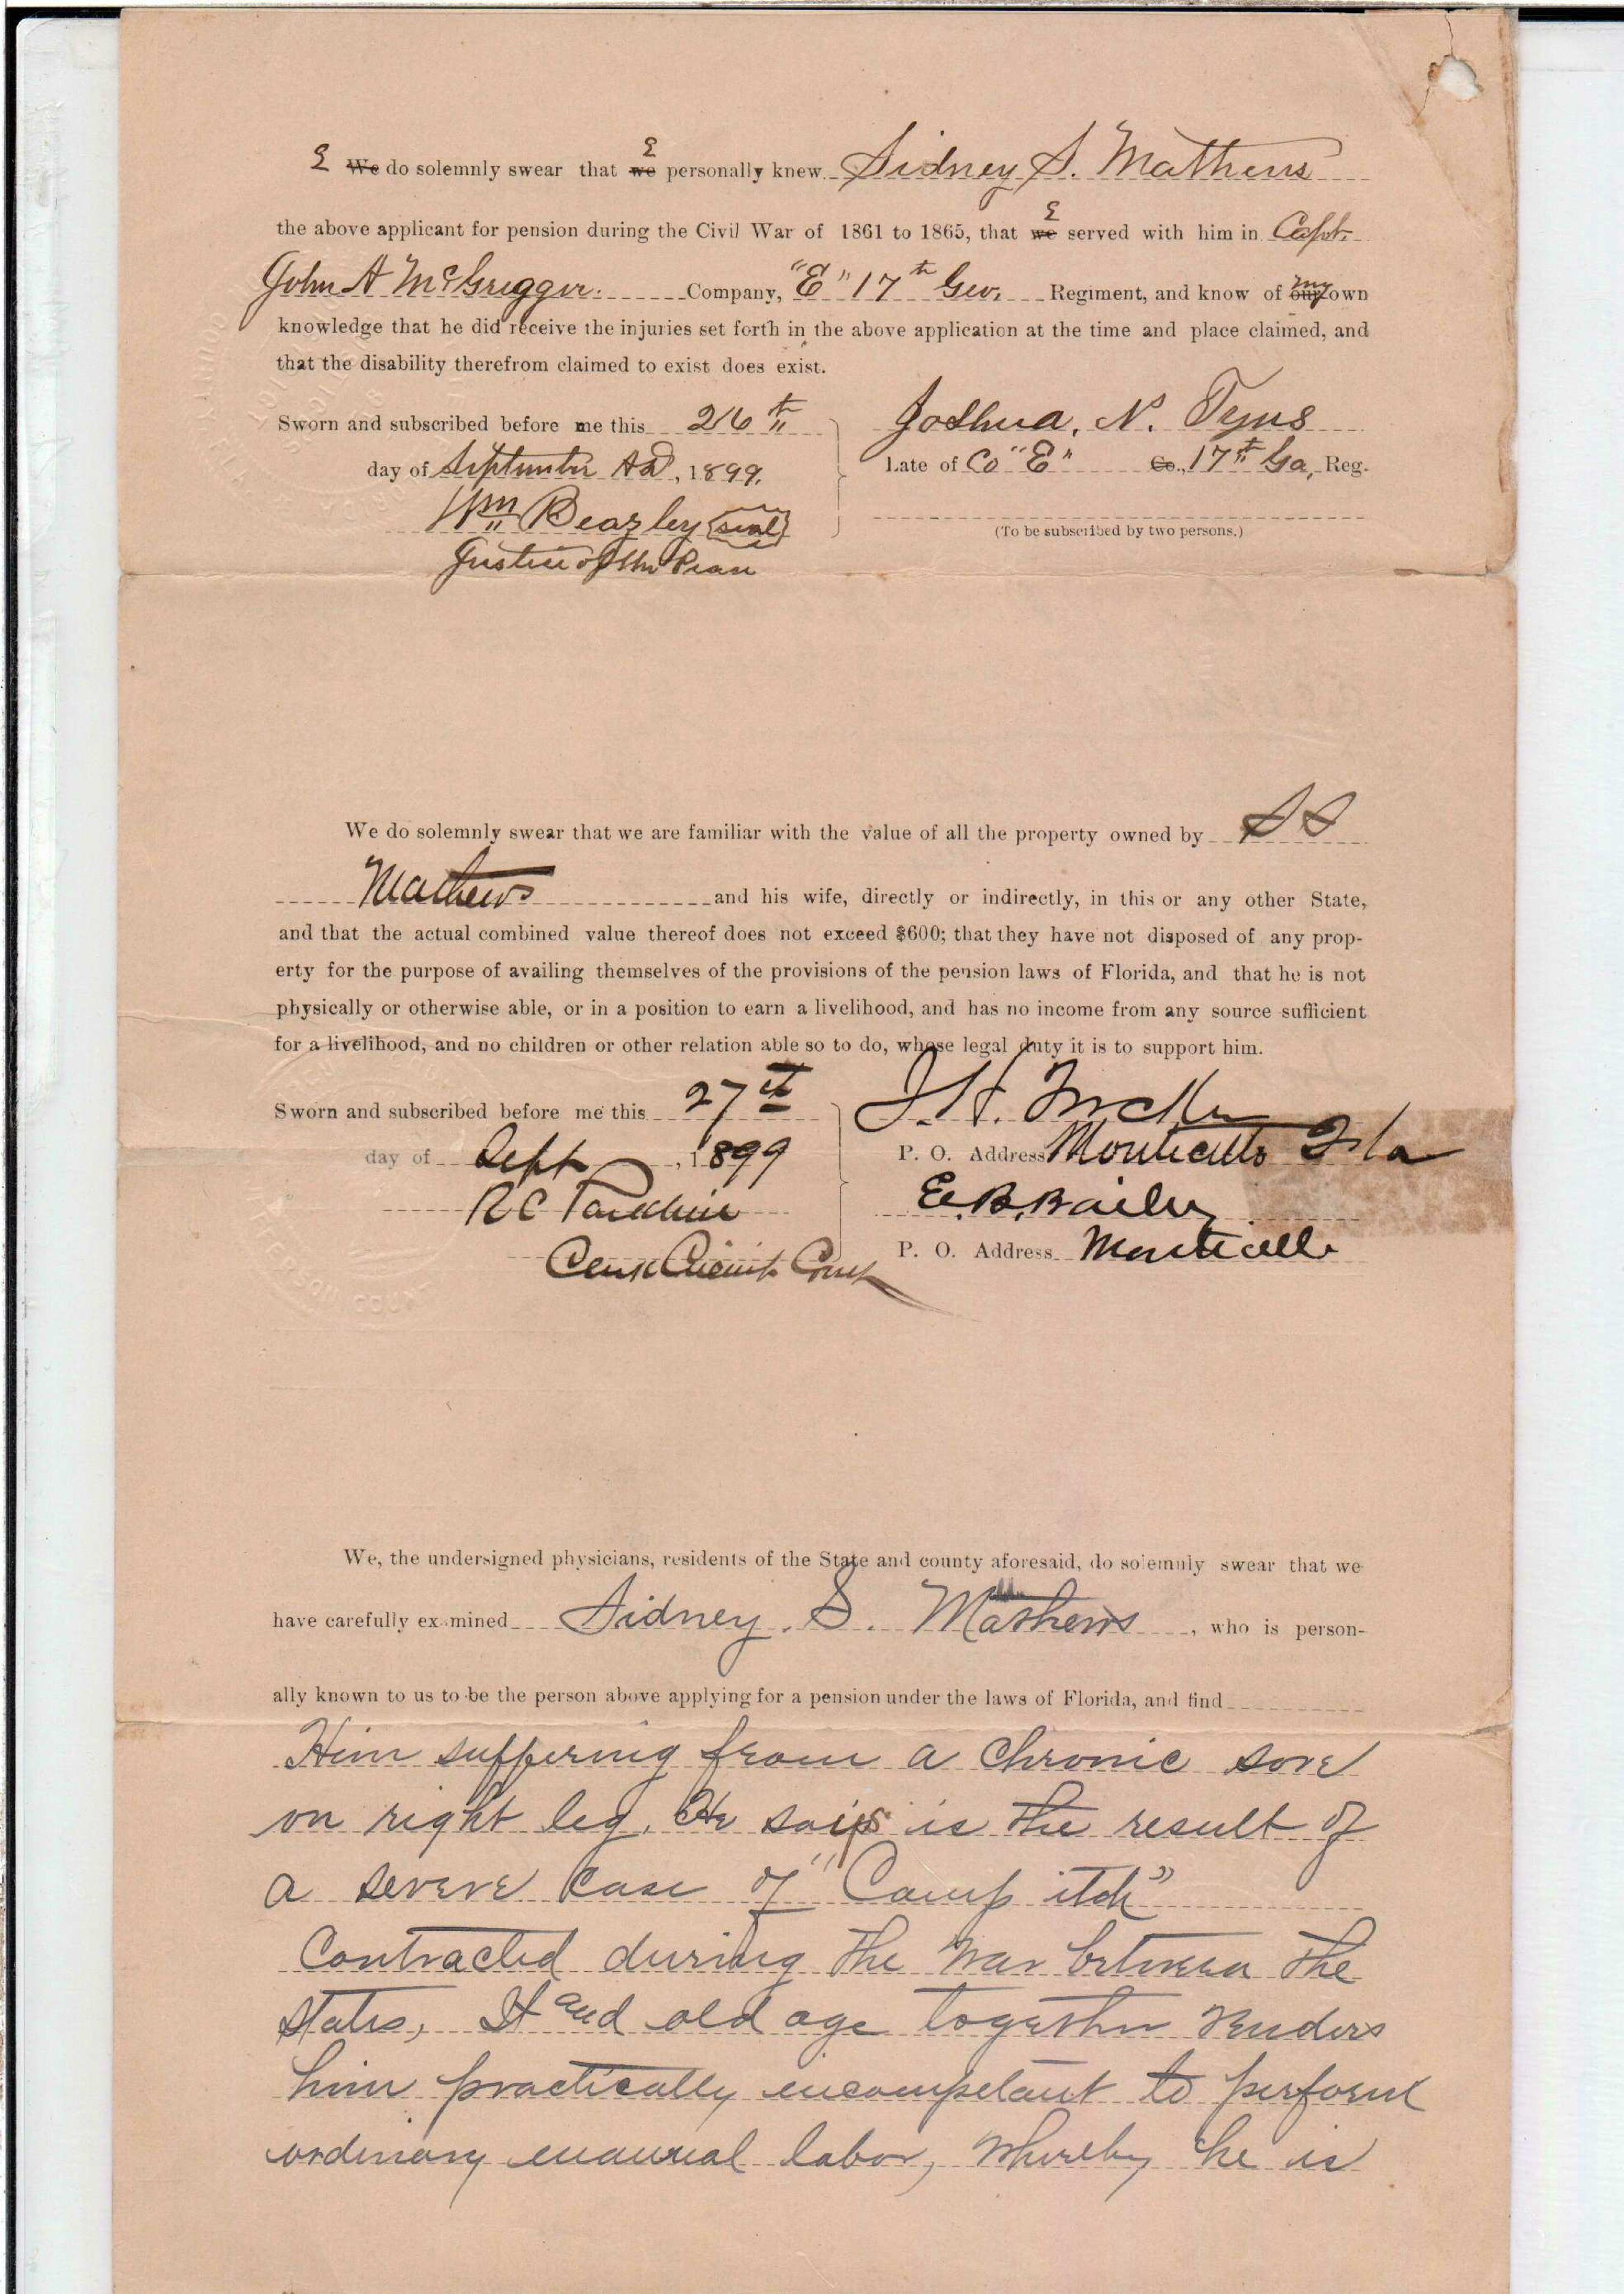 I I
We do solemnly swear that we personally knew Sidney S. Mathews
I
the above applicant for pension during the Civil War of 1861 to 1865, that we served with him in Capt.
my
John A McGriggor. Company, "E" 17th Geo. Regiment, and know of our own
knowledge that he did receive the injuries set forth in the above application at the time and place claimed, and
that the disability therefrom claimed to exist does exist.
Sworn and subscribed before me this 26th Joshua. N.
day of September AD, 1899. Late of Co "E" Co., 17th Ga, Reg.
Wm Beazley (seal)
(To be subscribed by two persons.)
Justice of the Peace
We do solemnly swear that we are familiar with the value of all the property owned by S S
Mathews and his wife, directly or indirectly, in this or any other State,
and that the actual combined value thereof does not exceed $600; that they have not disposed of any prop-
erty for the purpose of availing themselves of the provisions of the pension laws of Florida, and that he is not
physically or otherwise able, or in a position to earn a livelihood, and has no income from any source sufficient
for a livelihood, and no children or other relation able so to do, whose legal duty it is to support him.
Sworn and subscribed before me this 27th
day of Sept, 1899 P. O. Address Monticello Fla
R C E. B. Bailey
Clerk Circuit Court P. O. Address Monticello
We, the undersigned physicians, residents of the State and county aforesaid, do solemnly swear that we
have carefully examined Sidney. S. Mathews, who is person-
ally known to us to be the person above applying for a pension under the laws of Florida, and find
Him suffering from a Chronic sore
on right leg. He says is the result of
a severe case of "Camp itch"
Contracted during the war between the
States, It and old age together renders
him practically incompetant to perform
ordinary manual labor, whereby he is